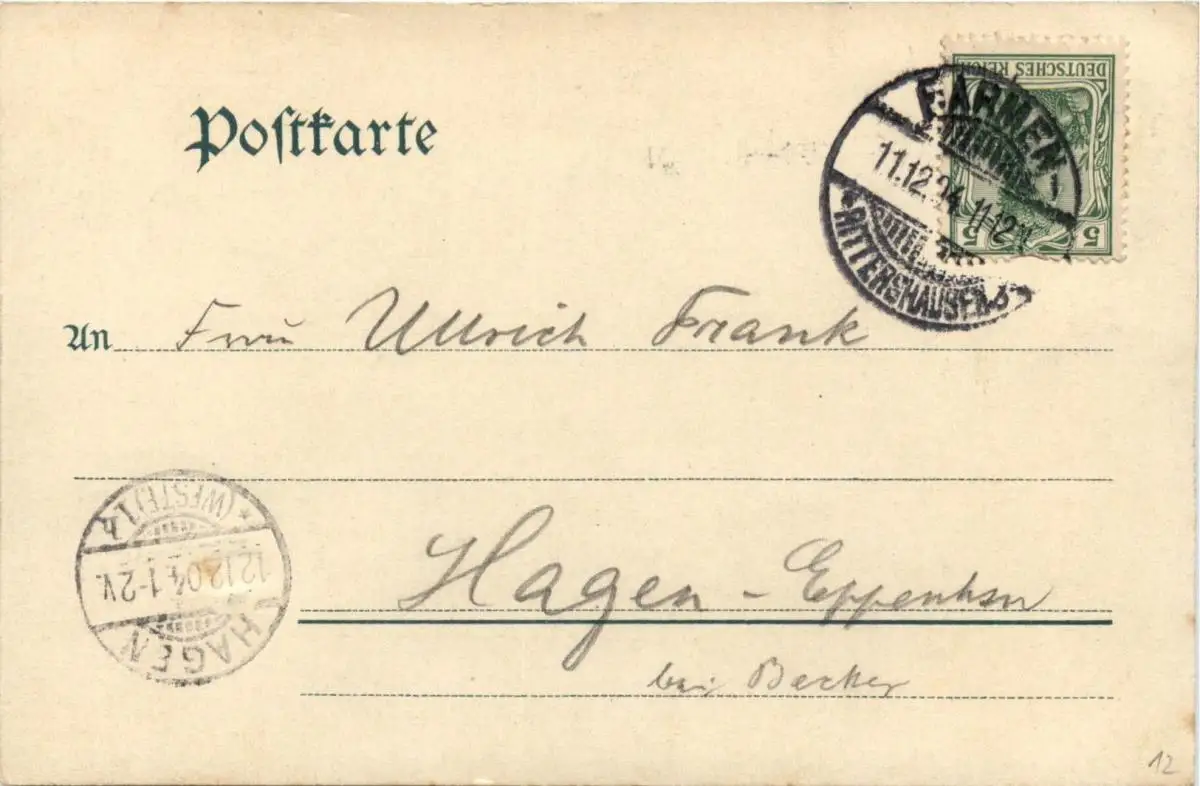 Postkarte
DEUTSCHES REICH
5 5
BARMEN-
11.12.04 11-12 V.
*RITTERSHAUSEN.
An Frau Ullrich Frank
*(WESTF.)1h
12.12.04.1-2V.
HAGEN
Hagen - Eppenhsn
bei Becker
12